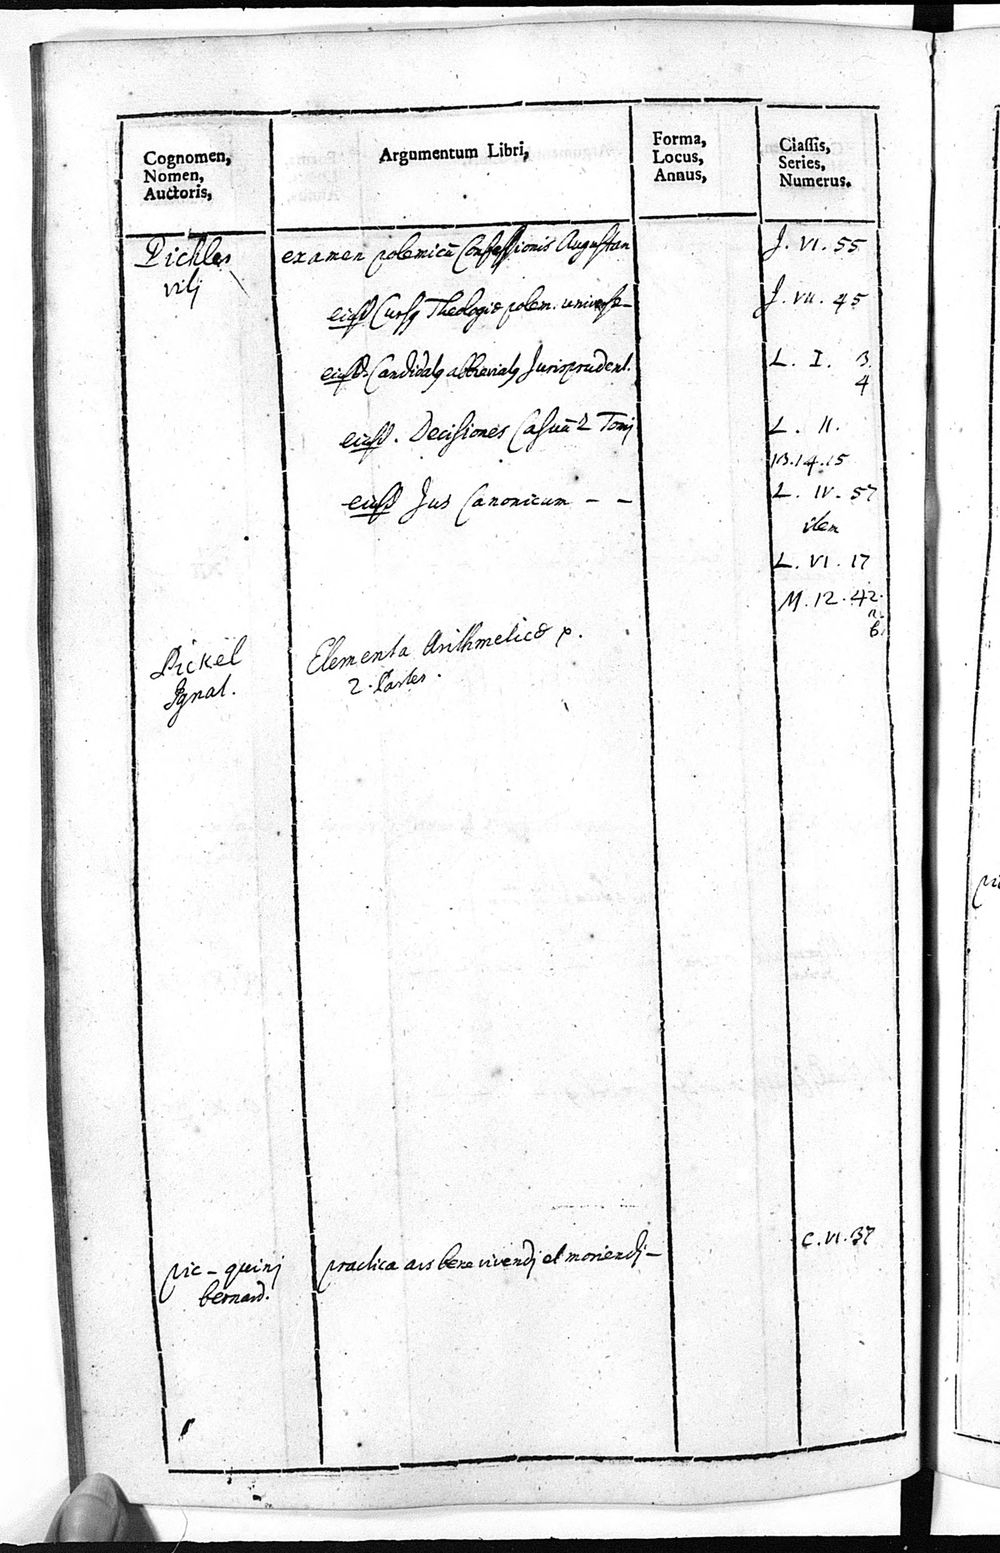 Cognomen,
Nomen,
Auctoris,
Argumentum Libri,
Forma,
Locus,
Annus,
Classis,
Series,
Numerus.
Pichler examen polemicū Confessionis Augustan J. VI. 55
vitj
eiusd Cursq Theologiæ polem. universæ – J. VII. 45
eiusd. Candidatq abbreviatq Jurisprudent. L. I. 3.
4
eiusd. Decisiones Casuū 2 Tomj L. II.
13.14.15
eiusd Jus Canonicum – – L. IV. 57
item
L. VI. 17
M. 12. 42.
a.
b.
Pickel Elementa Arithmeticæ
Ignat. 2. Partes.
pic-quinj practica ars bene vivendj et moriendj – C. VI. 37
bernard.